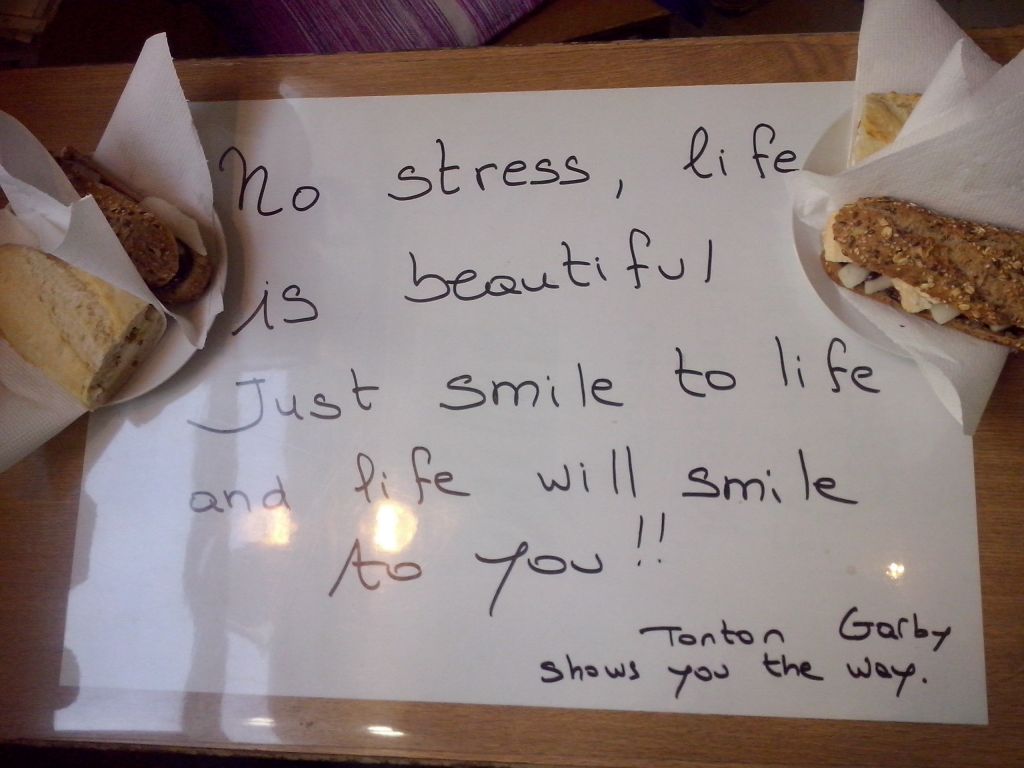 No stress, life
is beautiful
Just smile to life
and life will smile
to you !!
Tonton Garby
shows you the way.